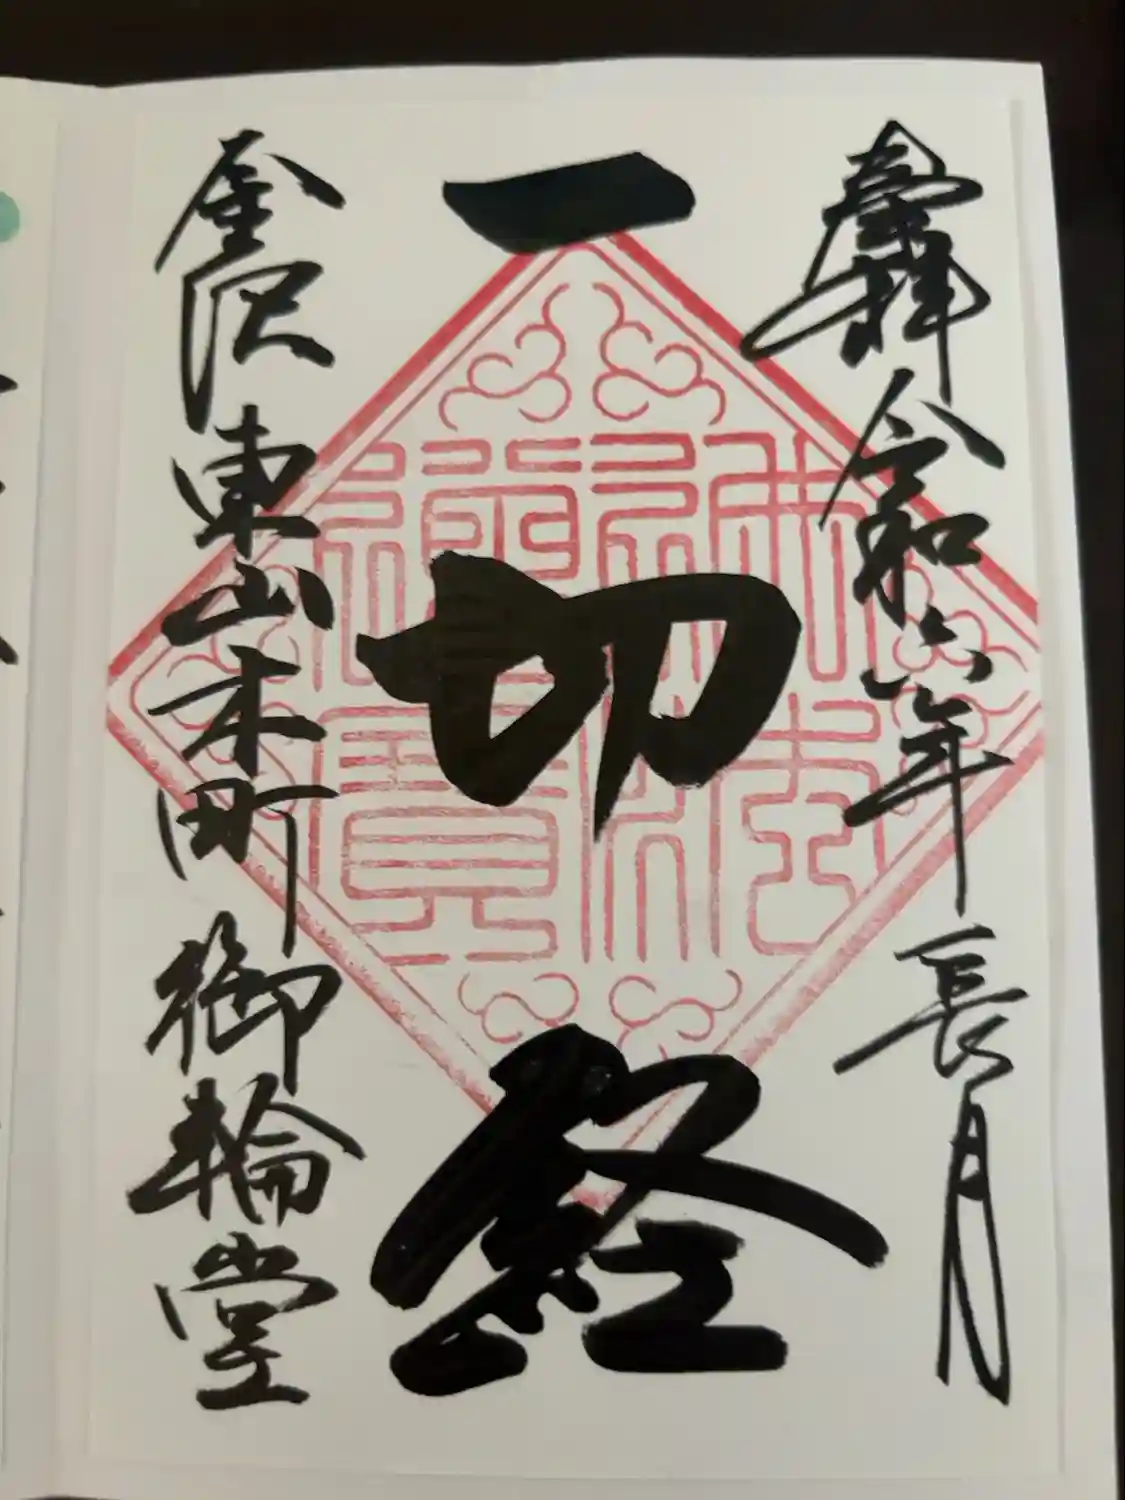 奉拝 令和六年 長月
一切経
金沢東山木町 御輪堂
佛法僧寶